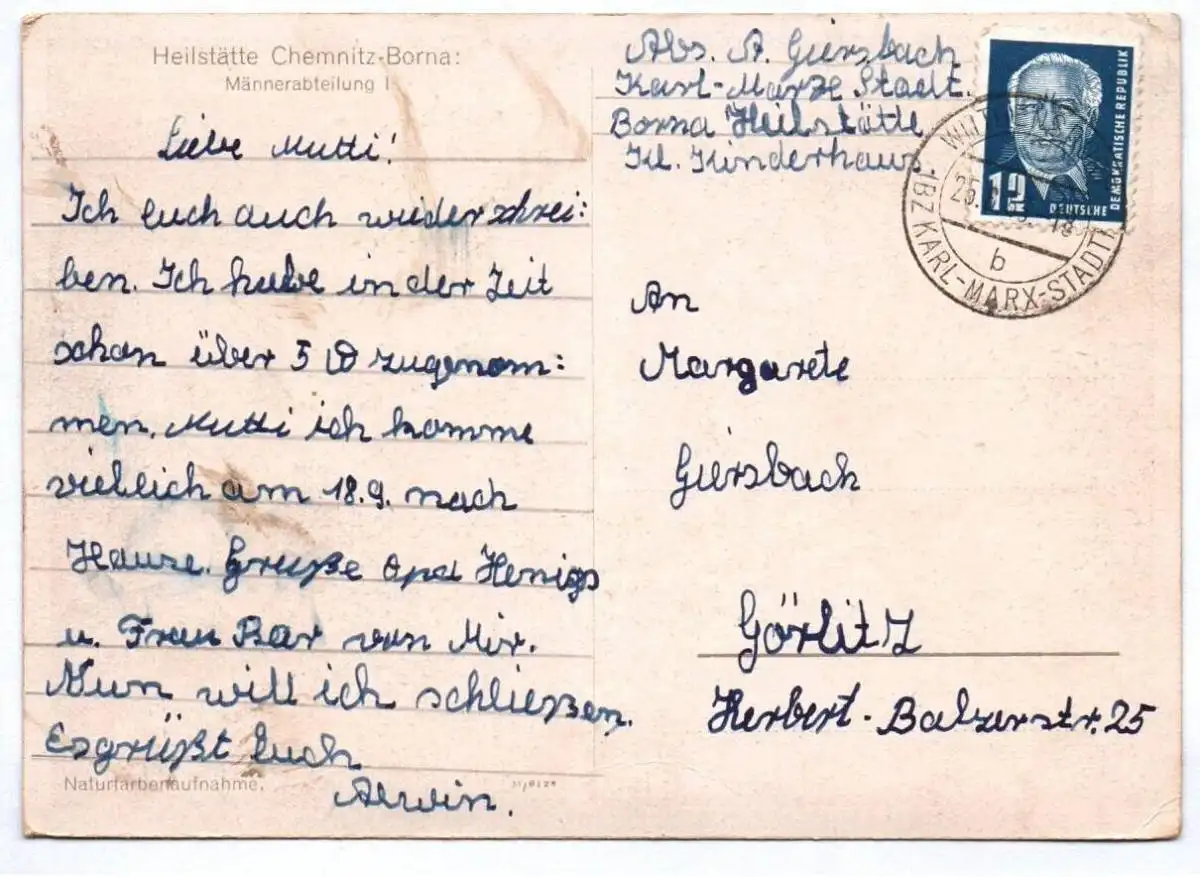 Heilstätte Chemnitz-Borna:
Männerabteilung I
Liebe Mutti!
Ich Euch auch wider schrei:
ben. Ich habe in der Zeit
schon über 5 ℔ zugenom:
men. Mutti ich komme
vieleich am 18.9. nach
Hause. Grüße Opa Henigs
u. Frau Bär von Mir.
Nun will ich schließen.
Esgrüßt Euch
Alwin.
Naturfarbenaufnahme.
Abs. A. Giersbach
Karl-Marxe Stadt.
Borna Heilstätte
Kl. Kinderhaus.
12
DEUTSCHE
DEMOKRATISCHE REPUBLIK
b
(BZ KARL-MARX-STADT)
An
Margarete
Giersbach
Görlitz
Herbert-Balzerstr. 25